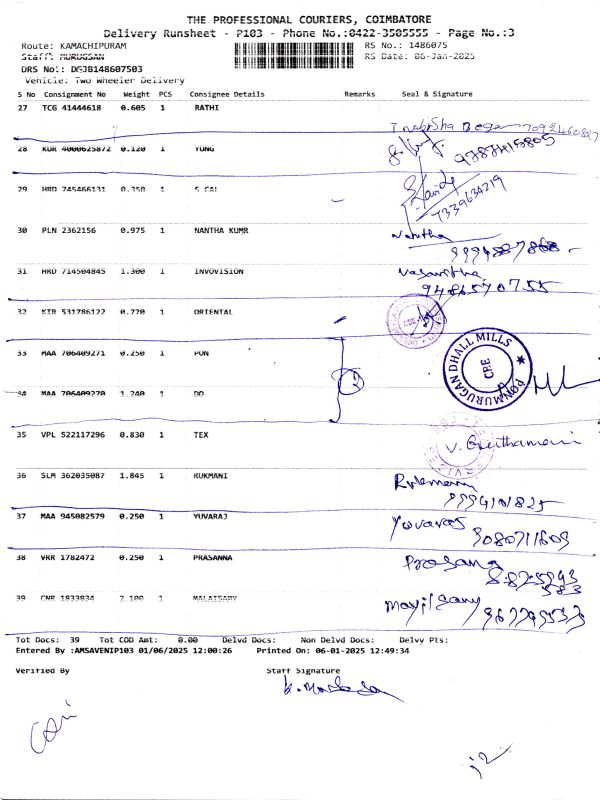 THE PROFESSIONAL COURIERS, COIMBATORE
Delivery Runsheet - P103 - Phone No.:0422-3505555 - Page No.:3
Route: KAMACHIPURAM
RS No.: 1486075
Staff: MURUGSAN
RS Date: 06-Jan-2025
DRS No.: DGJB148607503
Vehicle: Two Wheeler Delivery
S No Consignment No Weight PCS Consignee Details Remarks Seal & Signature
27 TCG 41444618 0.605 1 RATHI
7092460827
28 KUR 4000625872 0.120 1 YUNG
9787415805
29 HRD 745466131 0.350 1 S CAL
7339634219
30 PLN 2362156 0.975 1 NANTHA KUMR
Nantha
31 HRD 714504845 1.300 1 INVOVISION
Vasantha
32 KIR 531786122 0.770 1 ORIENTAL
33 MAA 706409271 0.250 1 PON
PONMURUGAN DHALL MILLS
CBE
2
34 MAA 706409270 1.240 1 DO
35 VPL 522117296 0.830 1 TEX
36 SLM 362035087 1.845 1 RUKMANI
Rukmani
37 MAA 945082579 0.250 1 YUVARAJ
Yuvaraj
9080711609
38 VRR 1782472 0.250 1 PRASANNA
Prasana
39 CNR 1933834 2.100 1 MALAISAMY
Mayilsamy
Tot Docs: 39 Tot COD Amt: 0.00 Delvd Docs: Non Delvd Docs: Delvy Pts:
Entered By :AMSAVENIP103 01/06/2025 12:00:26 Printed On: 06-01-2025 12:49:34
Verified By Staff Signature